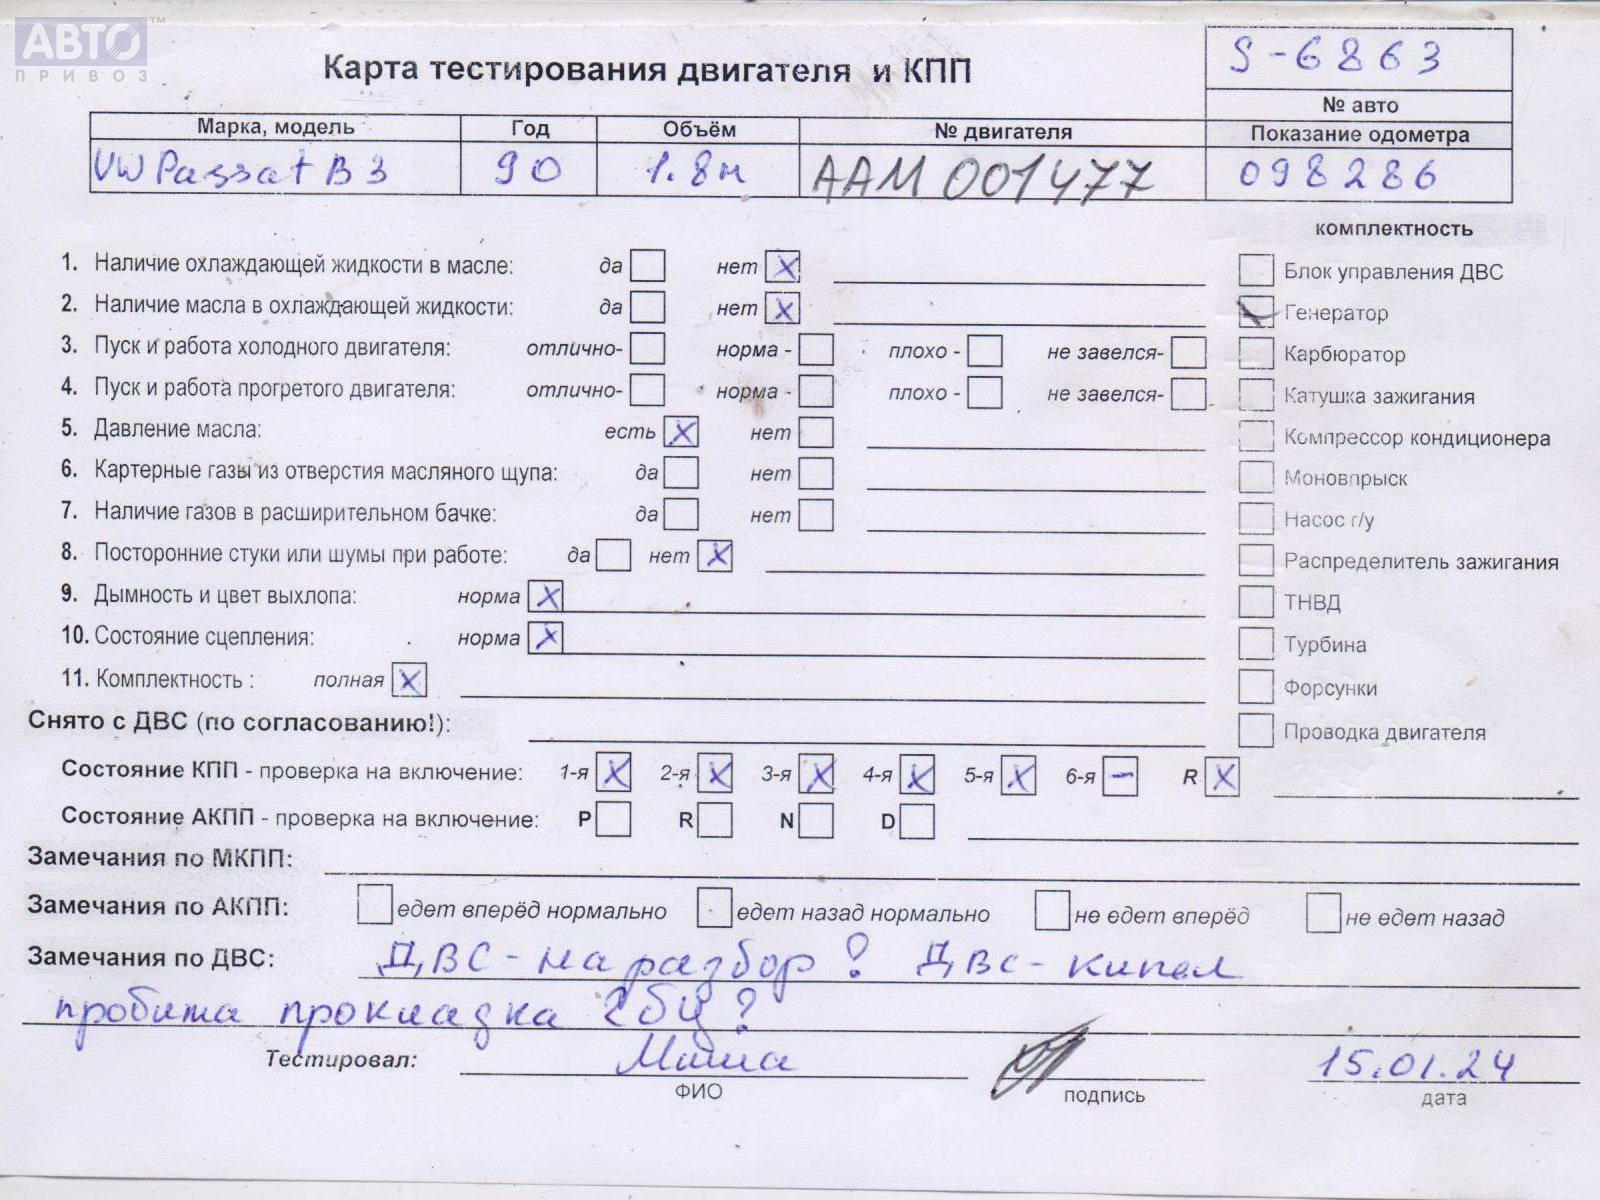 АВТО™
ПРИВОЗ
Карта тестирования двигателя и КПП
S-6863
№ авто
Марка, модель Год Объём № двигателя Показание одометра
VW Passat B3 90 1.8м ААМ 001477 098286
комплектность
1. Наличие охлаждающей жидкости в масле: да нет X
2. Наличие масла в охлаждающей жидкости: да нет X
3. Пуск и работа холодного двигателя: отлично- норма - плохо - не завелся-
4. Пуск и работа прогретого двигателя: отлично- норма - плохо - не завелся-
5. Давление масла: есть X нет
6. Картерные газы из отверстия масляного щупа: да нет
7. Наличие газов в расширительном бачке: да нет
8. Посторонние стуки или шумы при работе: да нет X
9. Дымность и цвет выхлопа: норма X
10. Состояние сцепления: норма X
11. Комплектность : полная X
Блок управления ДВС
Генератор
Карбюратор
Катушка зажигания
Компрессор кондиционера
Моновпрыск
Насос г/у
Распределитель зажигания
ТНВД
Турбина
Форсунки
Проводка двигателя
Снято с ДВС (по согласованию!):
Состояние КПП - проверка на включение: 1-я X 2-я X 3-я X 4-я X 5-я X 6-я – R X
Состояние АКПП - проверка на включение: P R N D
Замечания по МКПП:
Замечания по АКПП: едет вперёд нормально едет назад нормально не едет вперёд не едет назад
Замечания по ДВС: ДВС - на разбор? ДВС - кипел
пробита прокладка ГБЦ?
Тестировал: Миша 15.01.24
ФИО подпись дата